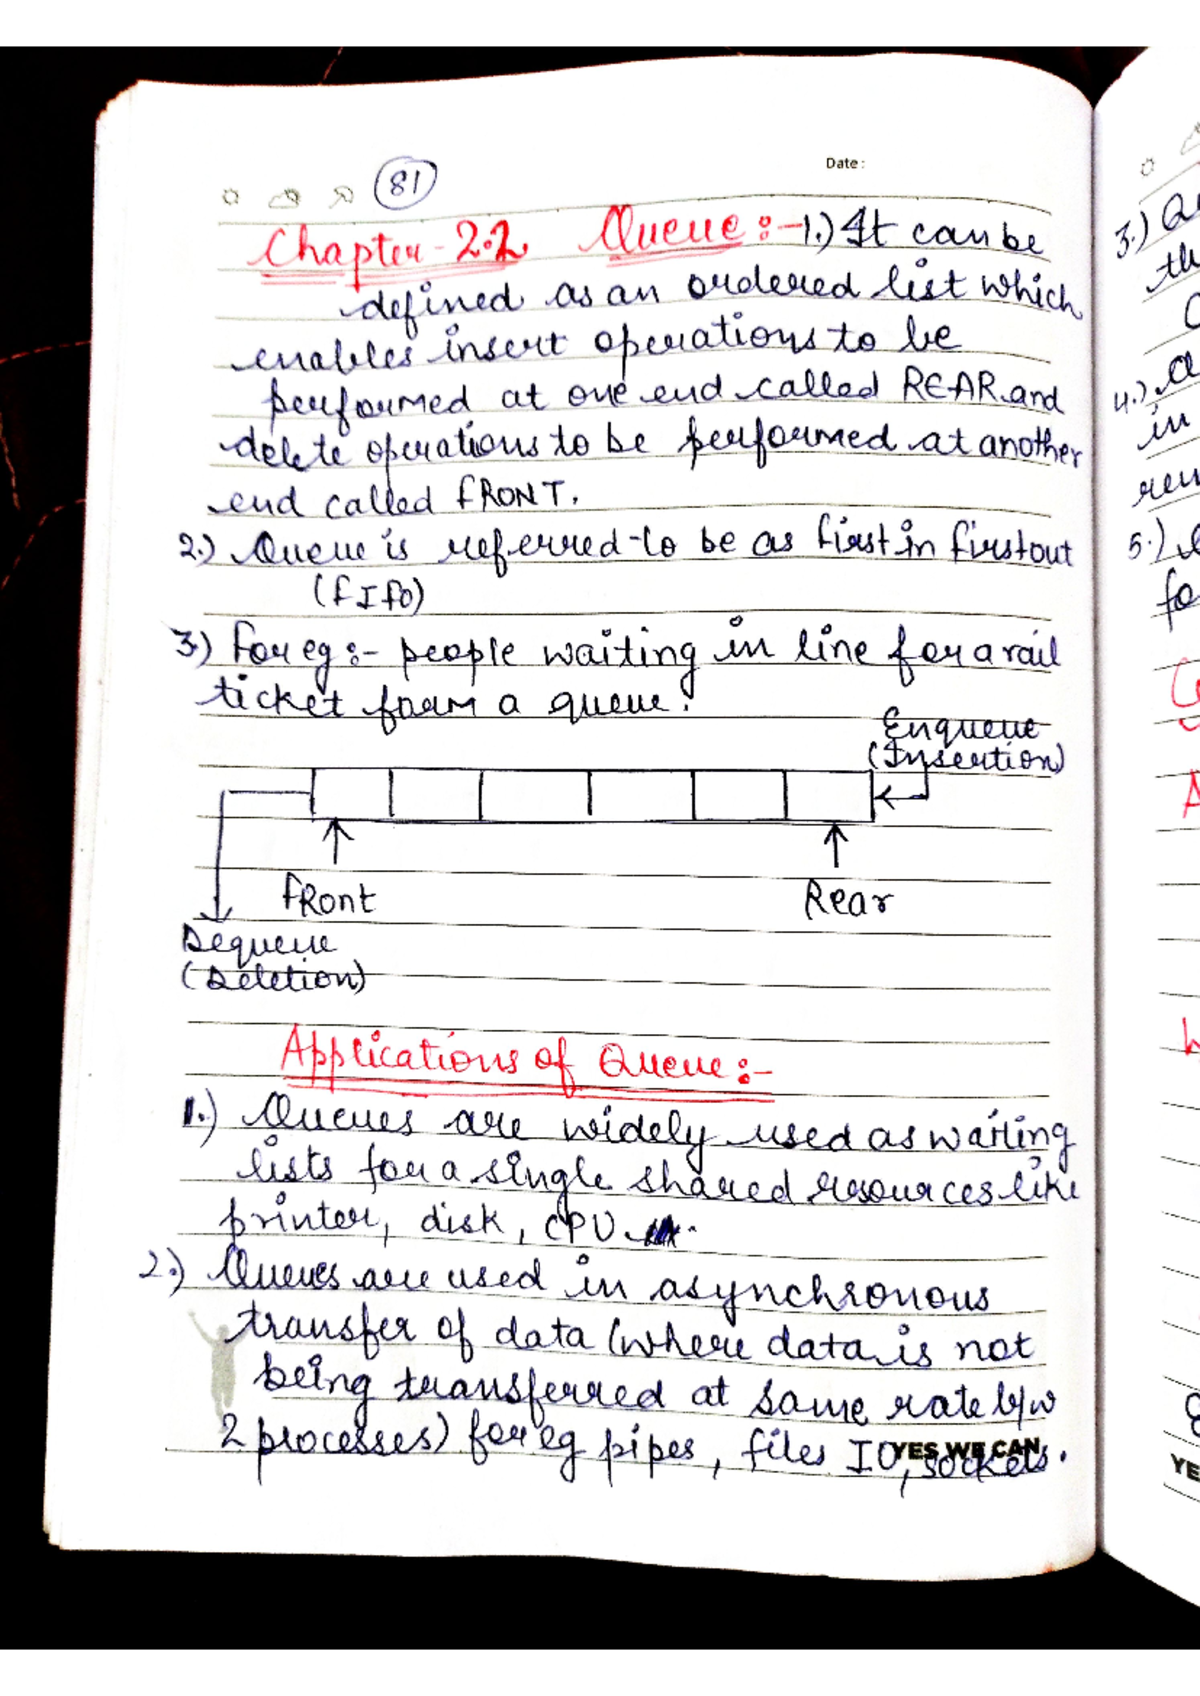 Date:
81
Chapter-2.2 Queue:-1.) It can be
defined as an ordered list which
enables insert operations to be
performed at one end called REAR and
delete operations to be performed at another
end called fRONT.
2.) Queue is referred to be as first in first out
(fIfO)
3.) For eg:- people waiting in line for a rail
ticket form a queue.
Enqueue
(Insertion)
fRont
Rear
Dequeue
(Deletion)
Applications of Queue:-
1.) Queues are widely used as waiting
lists for a single shared resources like
printer, disk, CPU.
2.) Queues are used in asynchronous
transfer of data (where data is not
being transferred at same rate b/w
2 processes) for eg pipes, files IO, sockets.
YES WE CAN
3.)
4.)
in
5.)
fo
YE